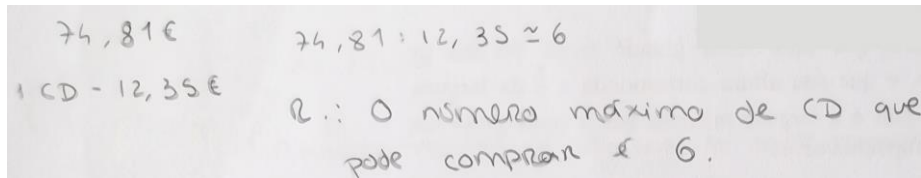 74,81€
74,81 : 12,35 ≃ 6
1 CD - 12,35€
R.: O número máximo de CD que
pode comprar é 6.